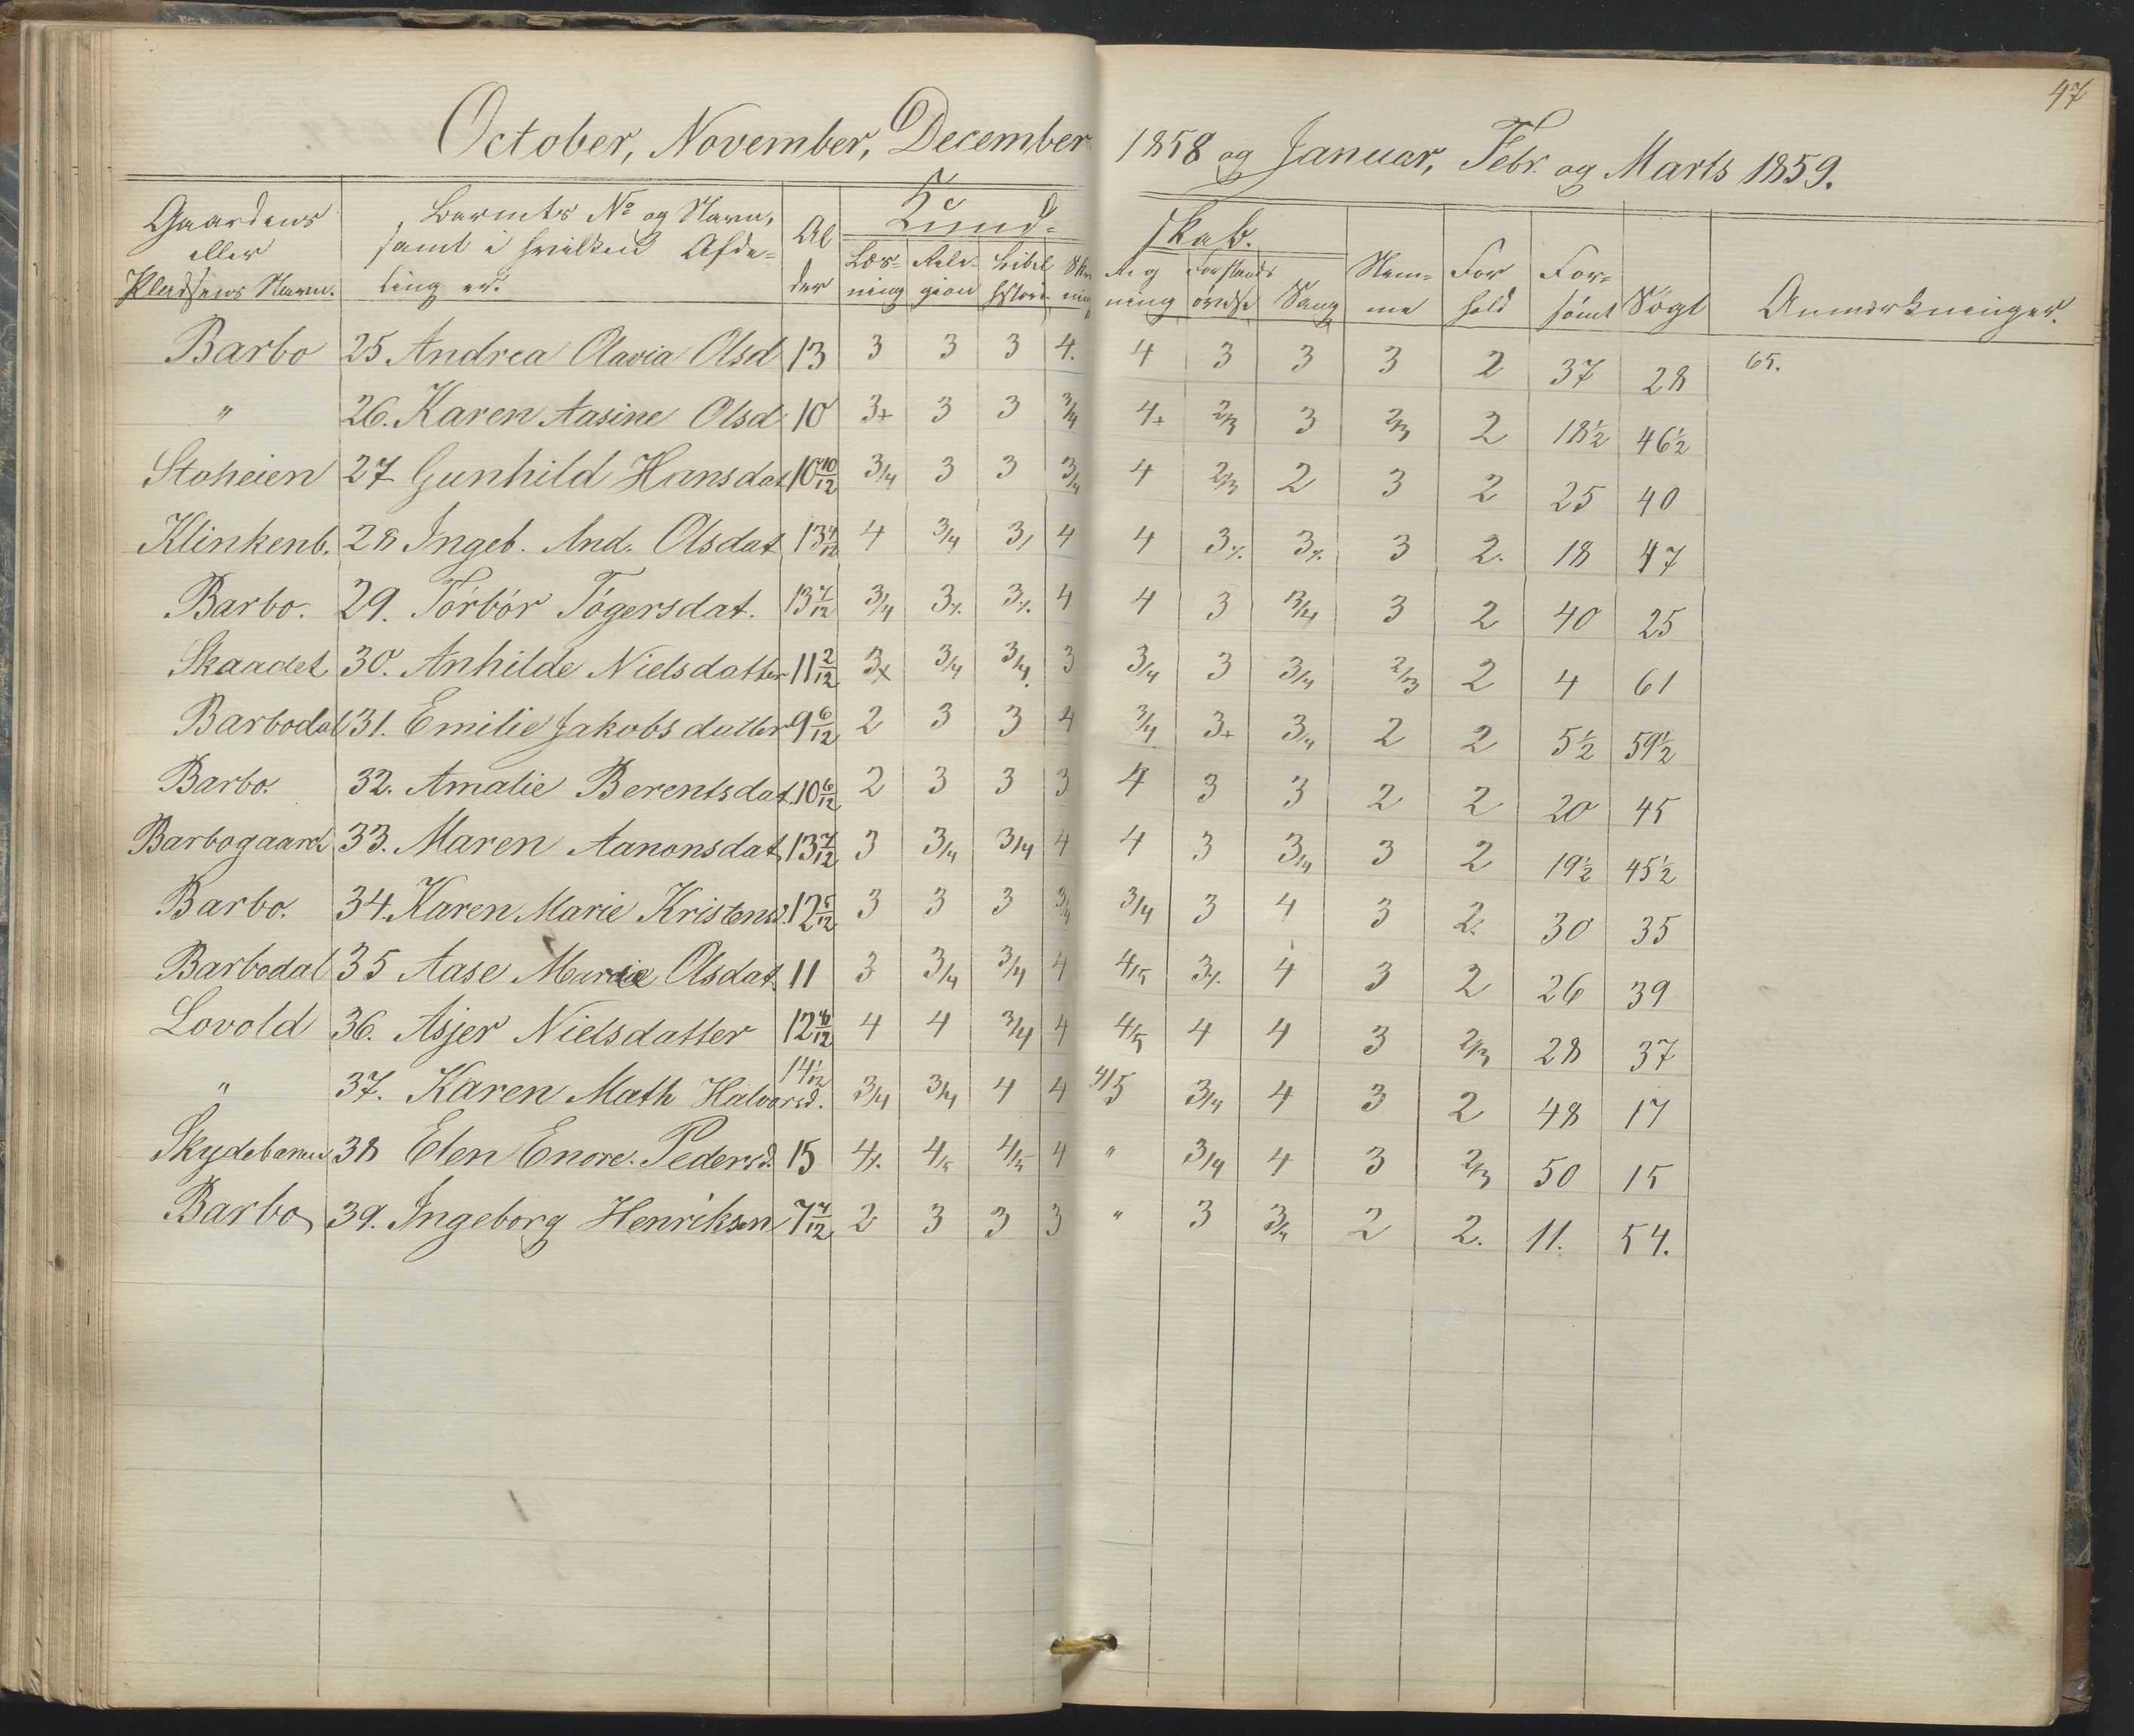 47
October, November, December 1858 og Januar, Febr. og Marts 1859.
Gaardens eller Pladsens Navn. Barnets No og Navn, samt i hvilken Afdeling er. Alder Kundskab. Nemme Forhold Forsømt Søgt Anmærkninger.
Læsning Religion Bibelhistorie Regning Forstandsøvelse Sang
Barbo 25 Andrea Olavia Olsd 13 3 3 3 4. 4 3 3 3 2 37 28 65.
" 26. Karen Aasine Olsd 10 3+ 3 3 3/4 4+ 2/3 3 2/3 2 18½ 46½
Stoheien 27 Gunhild Hansdat 10 10/12 3/4 3 3 3/4 4 2/3 2 3 2 25 40
Klinkenb. 28 Ingeb. And. Olsdat 13 4/12 4 3/4 3/ 4 4 3./. 3./. 3 2. 18 47
Barbo. 29. Törbör Tögersdat. 13 7/12 3/4 3./. 3./. 4 4 3 3/4 3 2 40 25
Skaadet 30. Anhilde Nielsdatter 11 2/12 3+ 3/4 3/4 3 3/4 3 3/4 2/3 2 4 61
Barbodal 31. Emilie Jakobsdatter 9 6/12 2 3 3 4 3/4 3+ 3/4 2 2 5½ 59½
Barbo. 32. Amalie Berentsdat. 10 6/12 2 3 3 3 4 3 3 2 2 20 45
Barbogaard 33. Maren Aanonsdat 13 7/12 3 3/4 3/4 4 4 3 3/4 3 2 19½ 45½
Barbo. 34. Karen Marie Kristensd. 12 5/12 3 3 3 3/4 3/4 3 4 3 2. 30 35
Barbodal 35 Aase Marie Olsdat. 11 3 3/4 3/4 4 4/5 3./. 4 3 2 26 39
Lovold 36. Asjer Nielsdatter 12 /12 4 4 3/4 4 4/5 4 4 3 2/3 28 37
" 37. Karen Math Halvorsd. 14 1/12 3/4 3/4 4 4 4/5 3/4 4 3 2 48 17
38 Elen Enore. Pedersd. 15 4/. 4/5 4/5 4 " 3/4 4 3 2/3 50 15
Barbo 39. Ingeborg Henriksen 7 7/12 2 3 3 3 " 3 3/4 2 2. 11. 54.